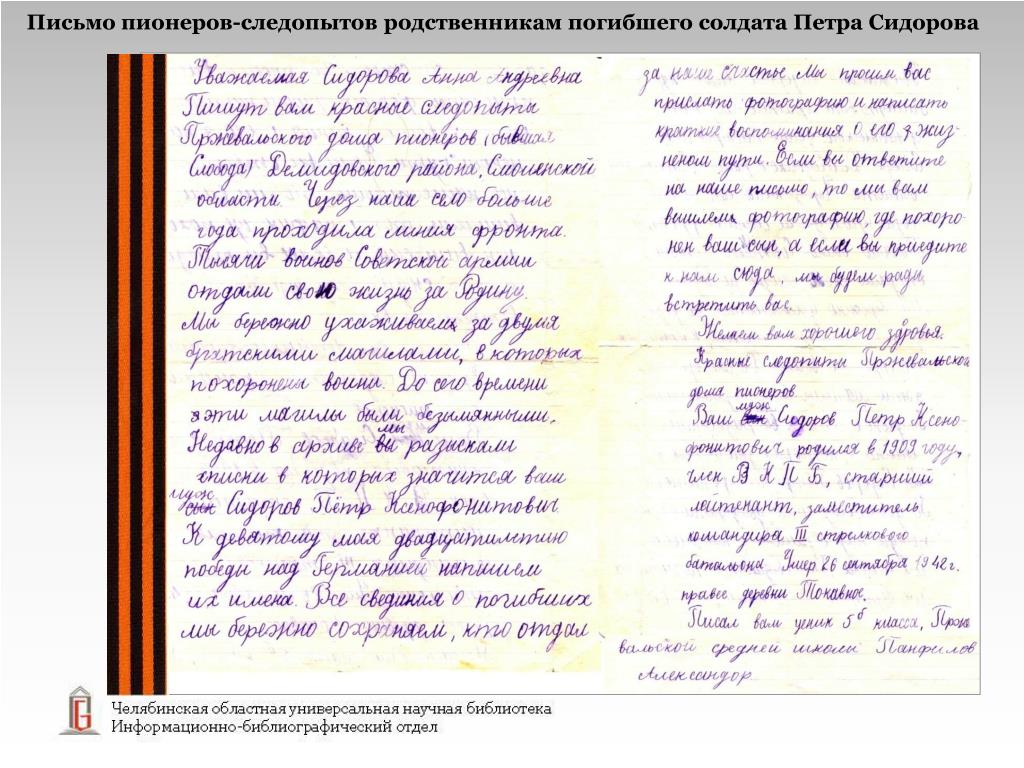 Письмо пионеров-следопытов родственникам погибшего солдата Петра Сидорова
Уважаемая Сидорова Анна Андреевна
Пишут вам красные следопыты
Пржевальского дома пионеров (бывшая
Слобода) Демидовского района, Смоленской
области. Через наше село больше
года проходила линия фронта.
Тысячи воинов Советской армии
отдали свою жизнь за Родину.
Мы бережно ухаживаем за двумя
братскими магилами, в которых
похоронены воины. До сего времени
эти магилы были безымянными.
мы
Недавно в архиве вы разыскали
списки в которых значится ваш
муж
сын Сидоров Пётр Ксенофонитович
К девятому мая двадцатилетию
победы над Германией напишем
их имена. Все сведения о погибших
мы бережно сохраняем, кто отдал
за наше счастье. Мы просим вас
прислать фотографию и написать
краткие воспоминания о его жиз-
неном пути. Если вы ответите
на наше письмо, то мы вам
вышлем фотографию, где похоро-
нен ваш сын, а если вы приедите
к нам сюда, мы будем рады
встретить вас.
Желаем вам хорошего здоровья.
Красные следопыты Пржевальской
дома пионеров.
муж
Ваш сын Сидоров Петр Ксено-
фонитович родился в 1909 году,
член В К П Б, старший
лейтенант, заместитель
командира III стрелкового
батальона Умер 26 сентября 1942 г.
правее деревни Токавное.
Писал вам ученик 5б класса, Прже
вальской средней школы Панфилов
Александр
Челябинская областная универсальная научная библиотека
Информационно-библиографический отдел